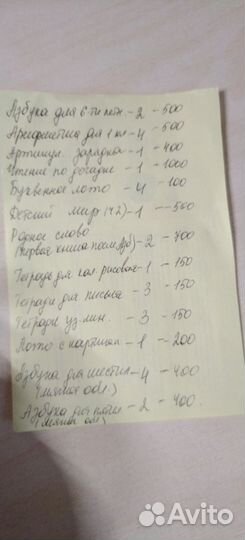 Азбука для 6-ти летн. - 2 - 500
Арифметика для 1 кл - 4 - 500
Артикул. зарядка - 1 - 400
Чтение по догадке - 1 - 1000
Буквенное лото - 4 - 100
Детский мир (ч 2) - 1 - 500
Родное слово
(Первая книга после Азб) - 2 - 700
Тетрадь для кал. рисован - 1 - 150
Тетради для письма - 3 - 150
Тетради уз. лин. - 3 - 150
Лото с картинк - 1 - 200
Азбука для шестил - 4 - 400
(мягкая обл.)
Азбука для - 2 - 400.
(мягкая обл)
Avito